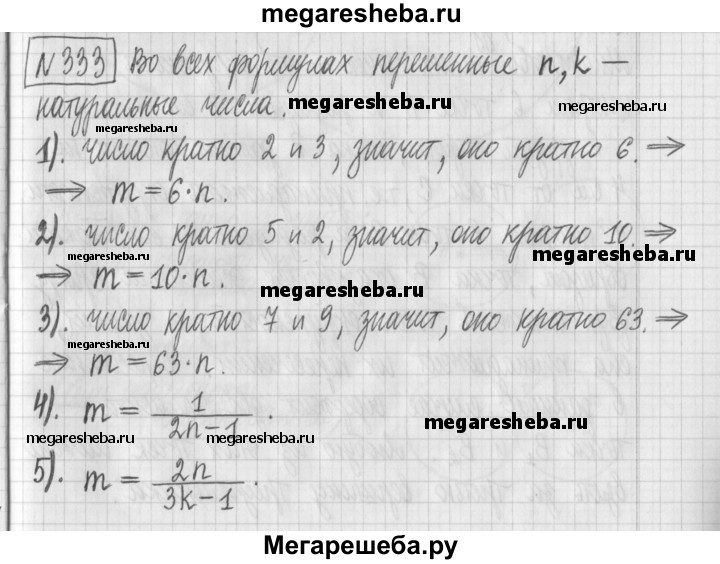 megaresheba.ru
№333 Во всех формулах переменные n, k —
натуральные числа. megaresheba.ru
megaresheba.ru megaresheba.ru
1). число кратно 2 и 3, значит, оно кратно 6. ⇒
⇒ m = 6·n.
megaresheba.ru
2). число кратно 5 и 2, значит, оно кратно 10. ⇒
megaresheba.ru
⇒ m = 10·n.
megaresheba.ru
3). число кратно 7 и 9, значит, оно кратно 63. ⇒
megaresheba.ru
⇒ m = 63·n.
4). m = 1/(2n-1).
megaresheba.ru
megaresheba.ru megaresheba.ru
5). m = 2n/(3k-1).
Мегарешеба.ру